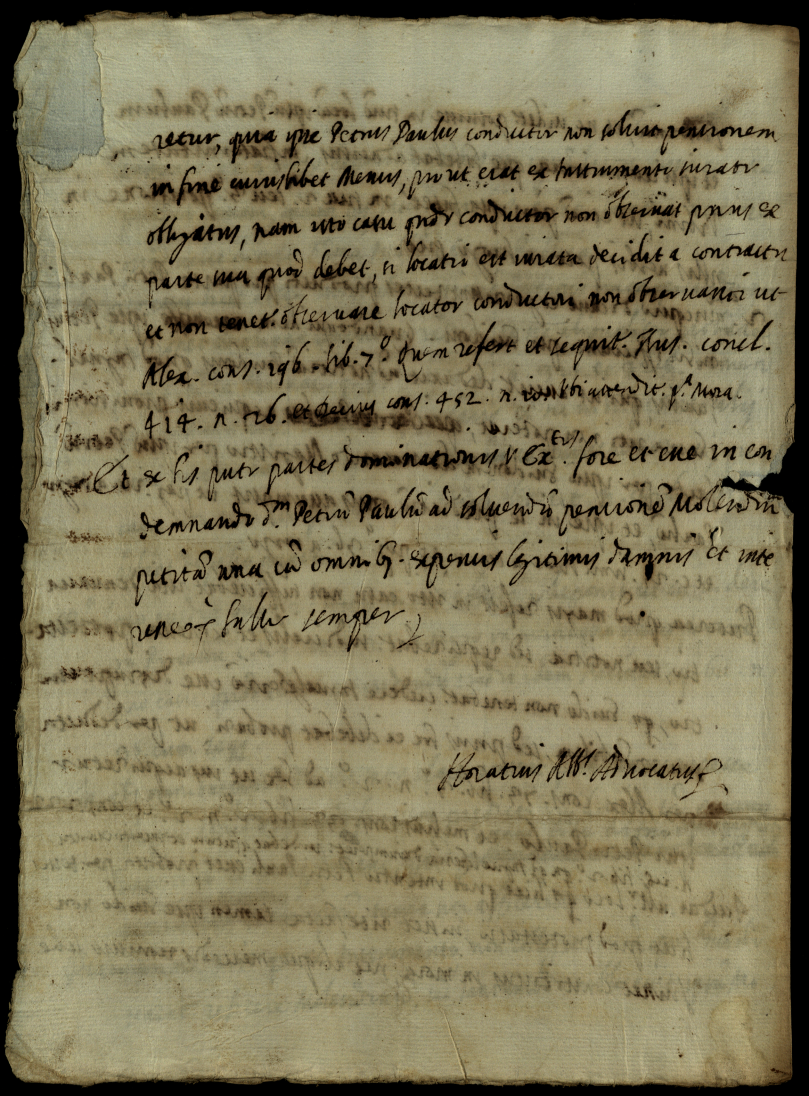 retur, quia ipse Petrus Paulus conductor non soluit pensionem
in fine cuiuslibet Mensis, prout erat ex Instrumento iurato
obligatus, nam isto casu qndo conductor non obseruat prius ex
parte sua quod debet, si locatio est iurata decidit a contractu
et non tenet.r obseruare locator conductori non obseruanti ut
Alex. cons. 196. lib. 7.o Quem refert et sequit.r concl.
414. n. 26. et Decius cons. 452. n.
Et ex his putr partes dominationis V. Ex.tiss fore et esse in con
demnando d.m Petrū Paulū ad soluendū pensionē Molendini
petitā una cū omnibq. expensis legitimis damnis et inte
resse salu semper
Horatius Advocatus